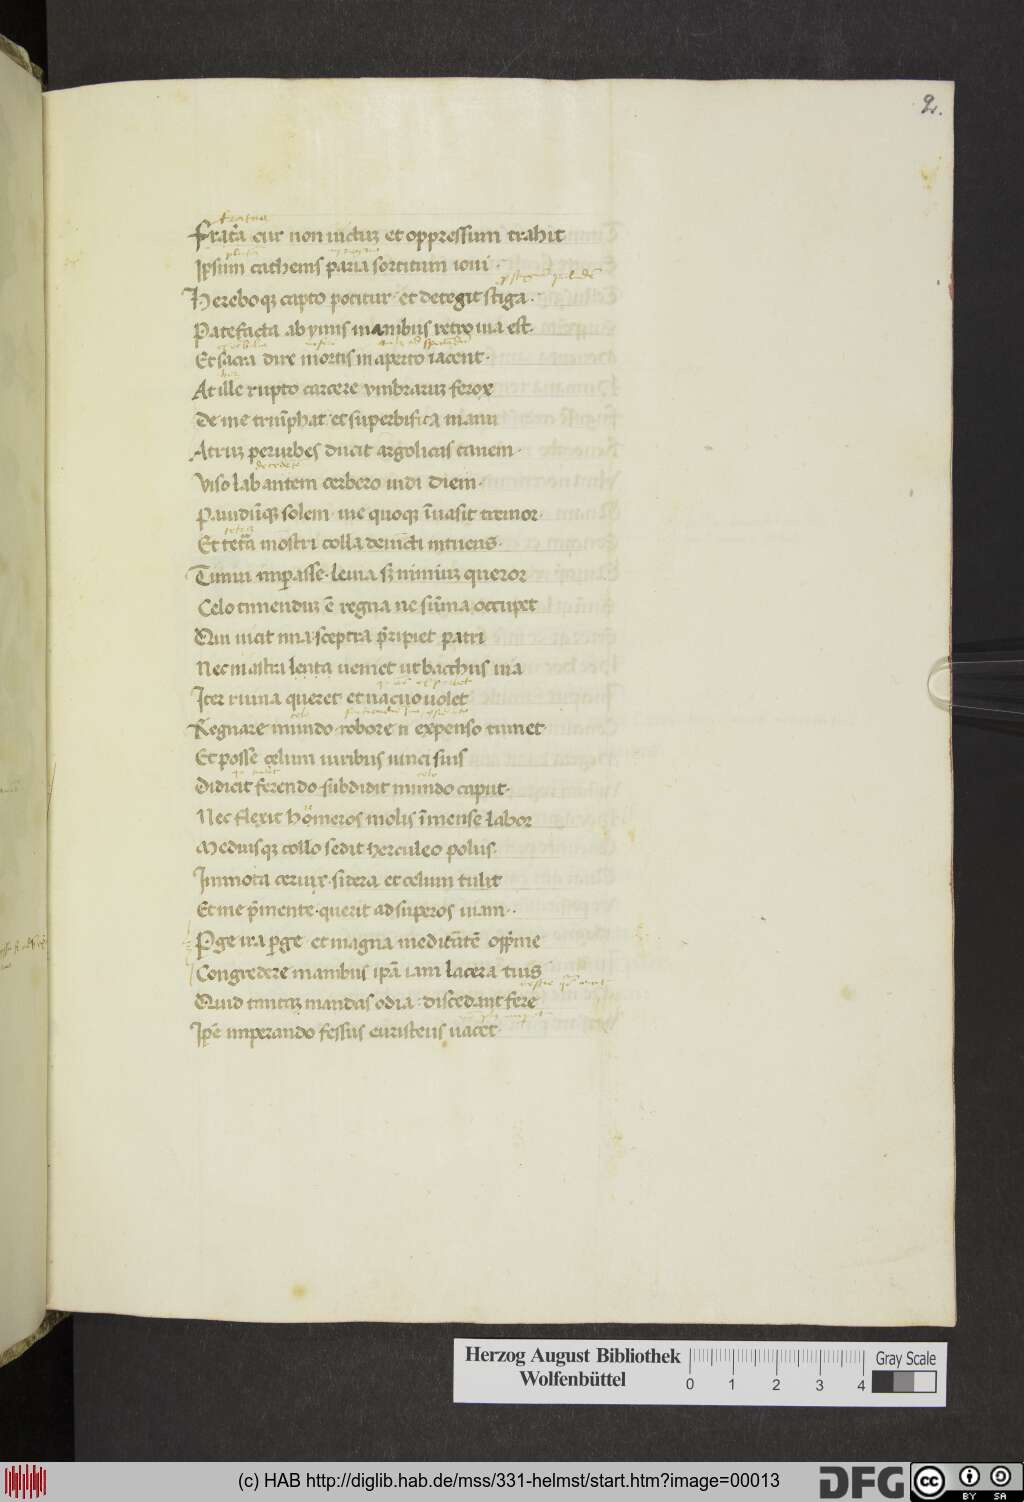 2.
Frat̃a cur non uictuʒ et oppressum trahit
Ip̃sum cathenis paria sortitum ioui
Hereboqꝫ capto potitur et detegit stiga.
Patefacta ab ymis manibus retro uia est.
Et sacra dire mortis in aperto iacent.
At ille rupto carcere vmbraruʒ ferox
De me triũphat et superbifica manu
Atruʒ per urbes ducit argolicas canem.
Viso labantem cerbero uidi diem.
Pauidũqꝫ solem. me quoqꝫ ĩuasit tremor.
Et tet̃a mõstri colla deuicti intuens.
Timui imꝑasse. leuia sꝫ nimiuʒ queror
Celo timenduʒ ẽ regna ne sũma occupet
Qui uicit ima. sceptra p̃ripiet patri
Nec in astra lenta ueniet ut bacchus uia
Iter ruina queret et uacuo uolet
Regnare mundo. robore ñ expenso tumet.
Et posse celum uiribus uinci suis
Didicit ferendo. subdidit mundo caput.
Nec flexit hũmeros molis ĩmense labor
Mediusqꝫ collo sedit herculeo polus.
Immota ceruix. sidera et celum tulit
Et me p̃mente. querit ad superos uiam.
Ꝑge ira ꝑge et magna meditãtẽ opp̃me
Congredere manibus ip̃a iam lacera tuis
Quid tantaʒ mandas odia. discedant fere
Ip̃e imperando fessus euristeus uacet
Herzog August Bibliothek
Wolfenbüttel
0 1 2 3 4
Gray Scale
(c) HAB http://diglib.hab.de/mss/331-helmst/start.htm?image=00013
DFG
cc BY SA